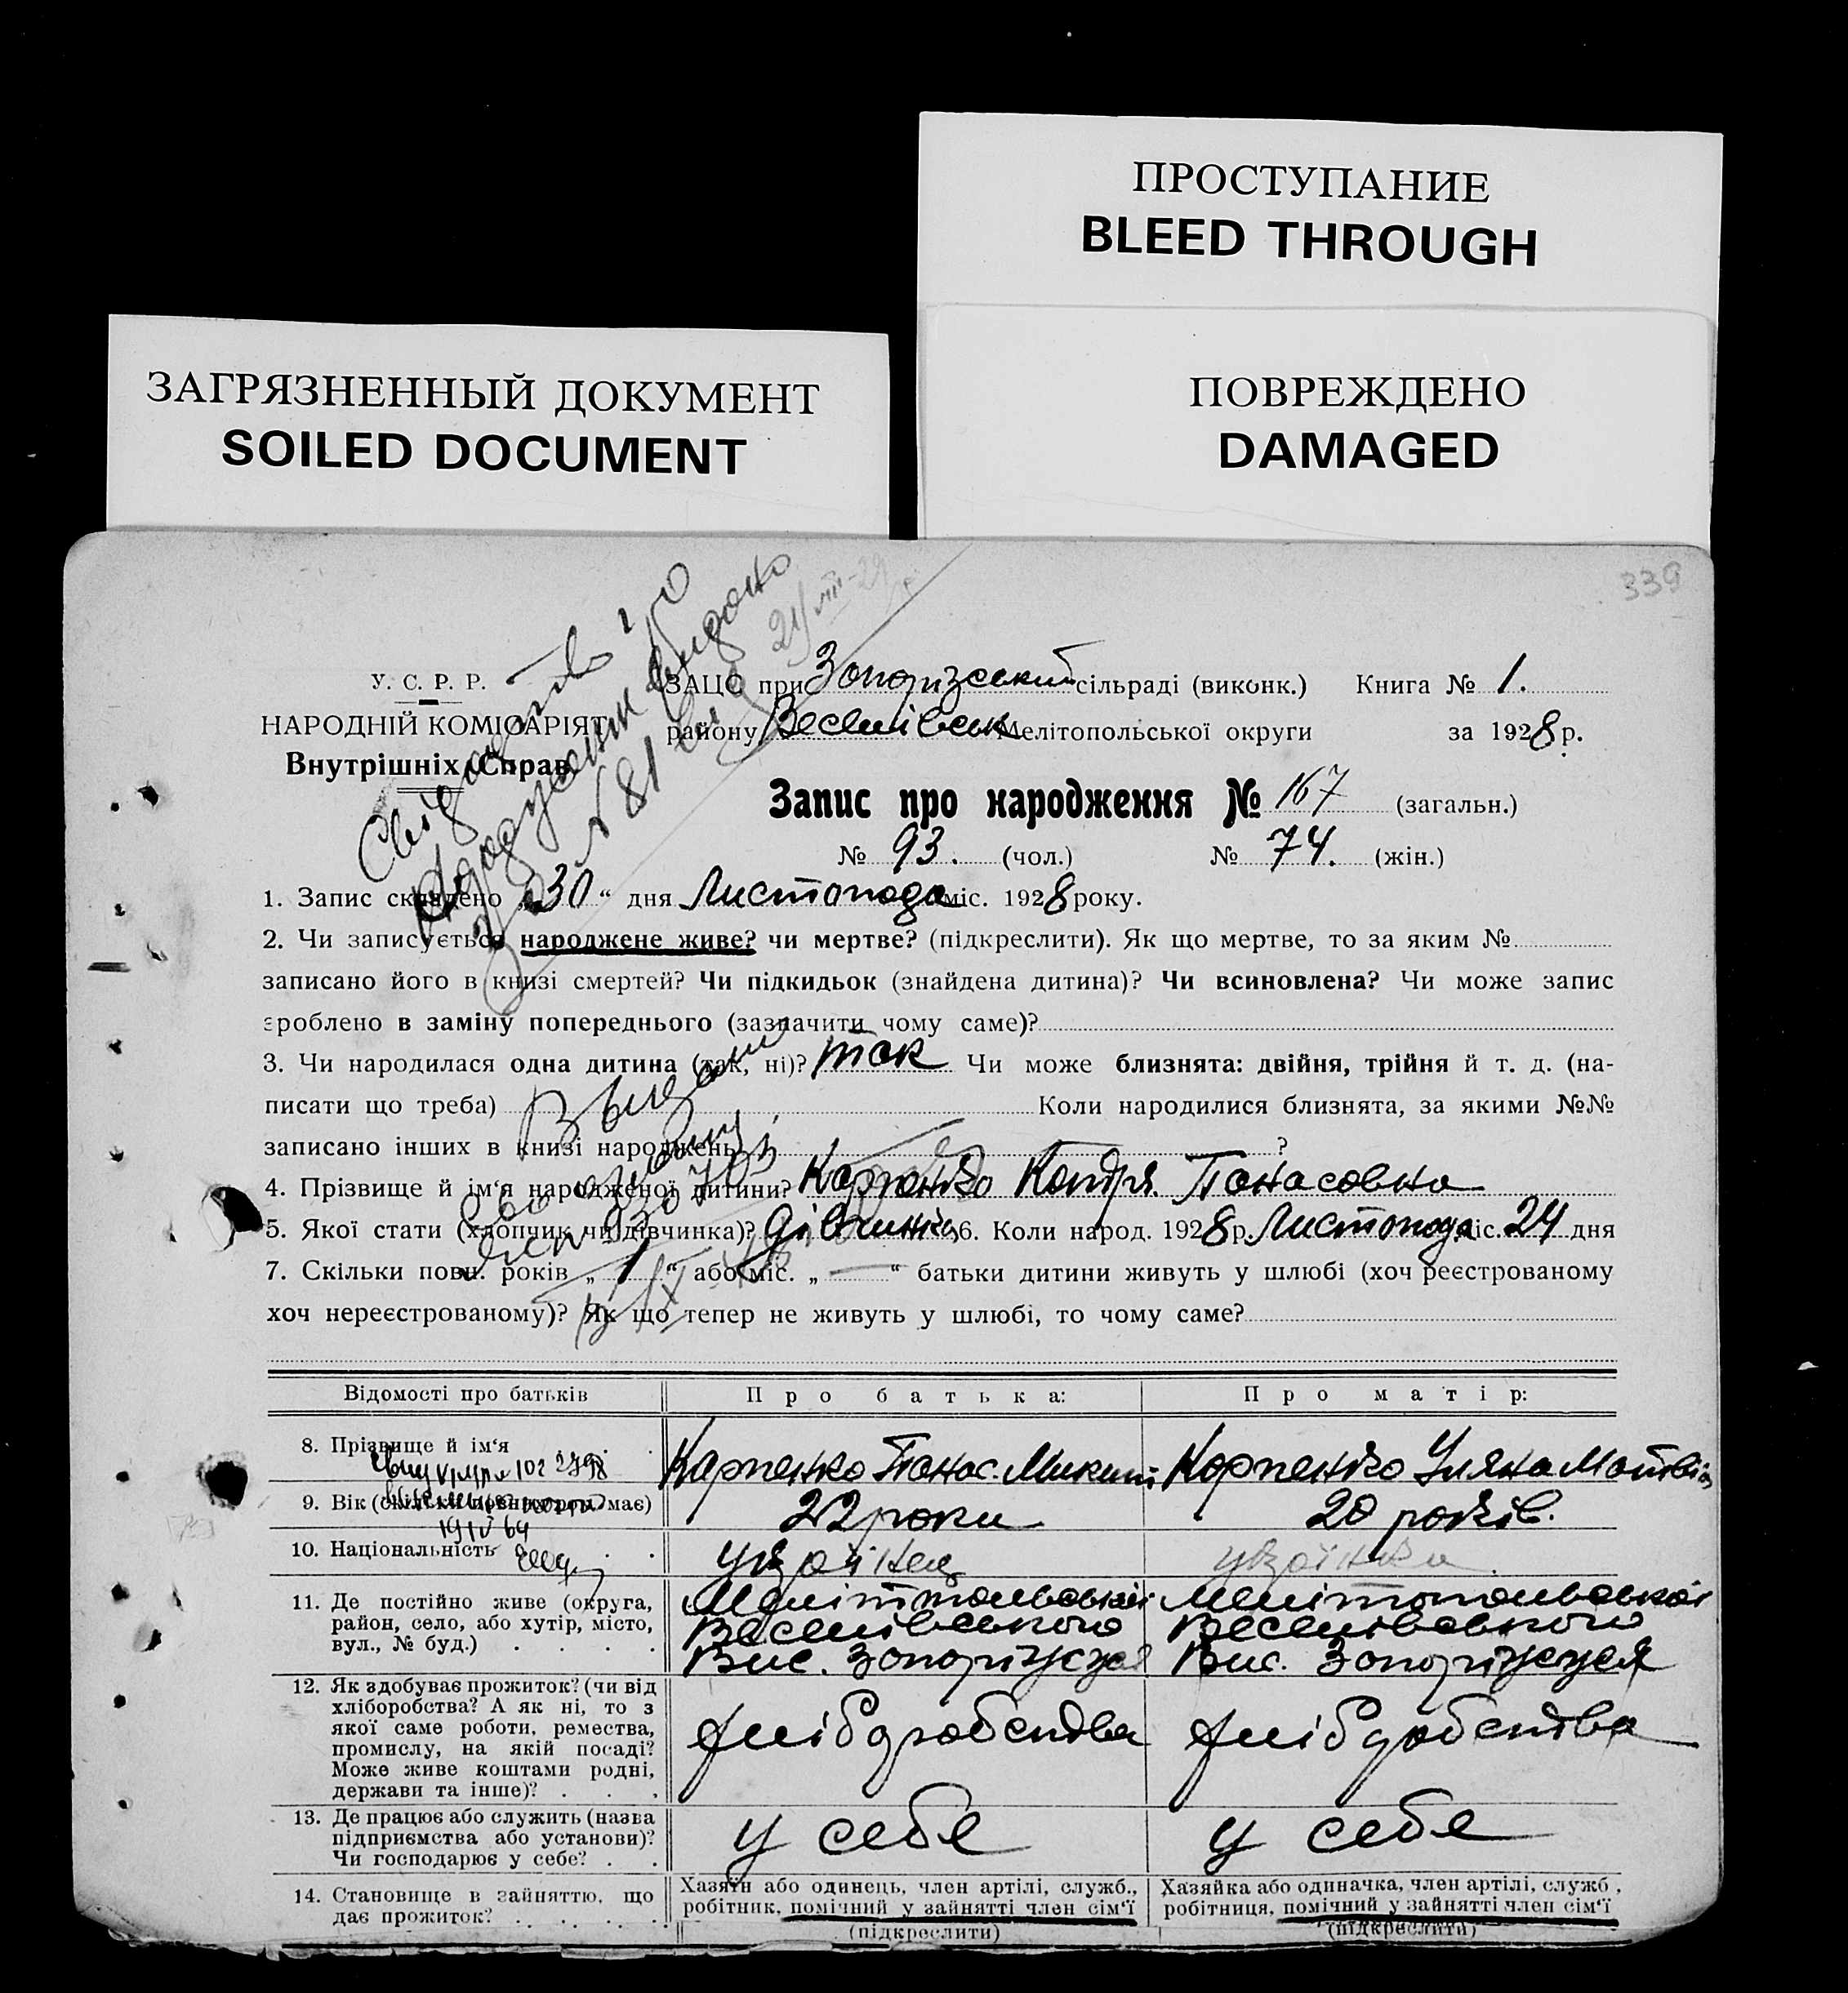 ПРОСТУПАНИЕ
BLEED THROUGH
ЗАГРЯЗНЕННЫЙ ДОКУМЕНТ
SOILED DOCUMENT
ПОВРЕЖДЕНО
DAMAGED
339
У. С. Р. Р.
НАРОДНІЙ КОМІСАРІЯТ
Внутрішніх Справ
ЗАЦС при Запорізський сільраді (виконк.) Книга № 1.
району Веселівськ Мелітопольської округи за 1928 р.
Запис про народження № 167 (загальн.)
№ 93. (чол.) № 74. (жін.)
1. Запис складено „30“ дня Листопада міс. 1928 року.
2. Чи записується народжене живе? чи мертве? (підкреслити). Як що мертве, то за яким №
записано його в книзі смертей? Чи підкидьок (знайдена дитина)? Чи всиновлена? Чи може запис
зроблено в заміну попереднього (зазначити чому саме)?
3. Чи народилася одна дитина (так, ні)? так Чи може близнята: двійня, трійня й т. д. (на-
писати що треба) Коли народилися близнята, за якими №№
записано інших в книзі народжень ?
4. Прізвище й ім‘я народженої дитини? Карпенко Катря. Панасовна
5. Якої стати (хлопчик чи дівчинка)? дівчинка 6. Коли народ. 1928 р. Листопада міс. 24 дня
7. Скільки повн. років „ 1 “ або міс. „ — “ батьки дитини живуть у шлюбі (хоч реєстрованому
хоч нереєстрованому)? Як що тепер не живуть у шлюбі, то чому саме?
Відомості про батьків Про батька: Про матір:
8. Прізвище й ім‘я Карпенко Панас. Микит Карпенко Уляна Матвіі
9. Вік (скільки повних років має) 22 роки 20 років.
10. Національність українец українка
11. Де постійно живе (округа,
район, село, або хутір, місто,
вул., № буд.)
Мелітопольської
Веселівського
Вис. Запоріжжя
Мелітопольської
Веселівського
Вис. Запоріжжя
12. Як здобуває прожиток? (чи від
хліборобства? А як ні, то з
якої саме роботи, ремества,
промислу, на якій посаді?
Може живе коштами родні,
держави та інше)?
хліборобства хліборобства
13. Де працює або служить (назва
підприємства або установи)?
Чи господарює у себе?
у себе у себе
14. Становище в зайняттю, що
дає прожиток?
Хазяїн або одинець, член артілі, служб.,
робітник, помічний у зайнятті член сім‘ї
(підкреслити)
Хазяйка або одиначка, член артілі, служб,
робітниця, помічний у зайнятті член сім‘ї
(підкреслити)